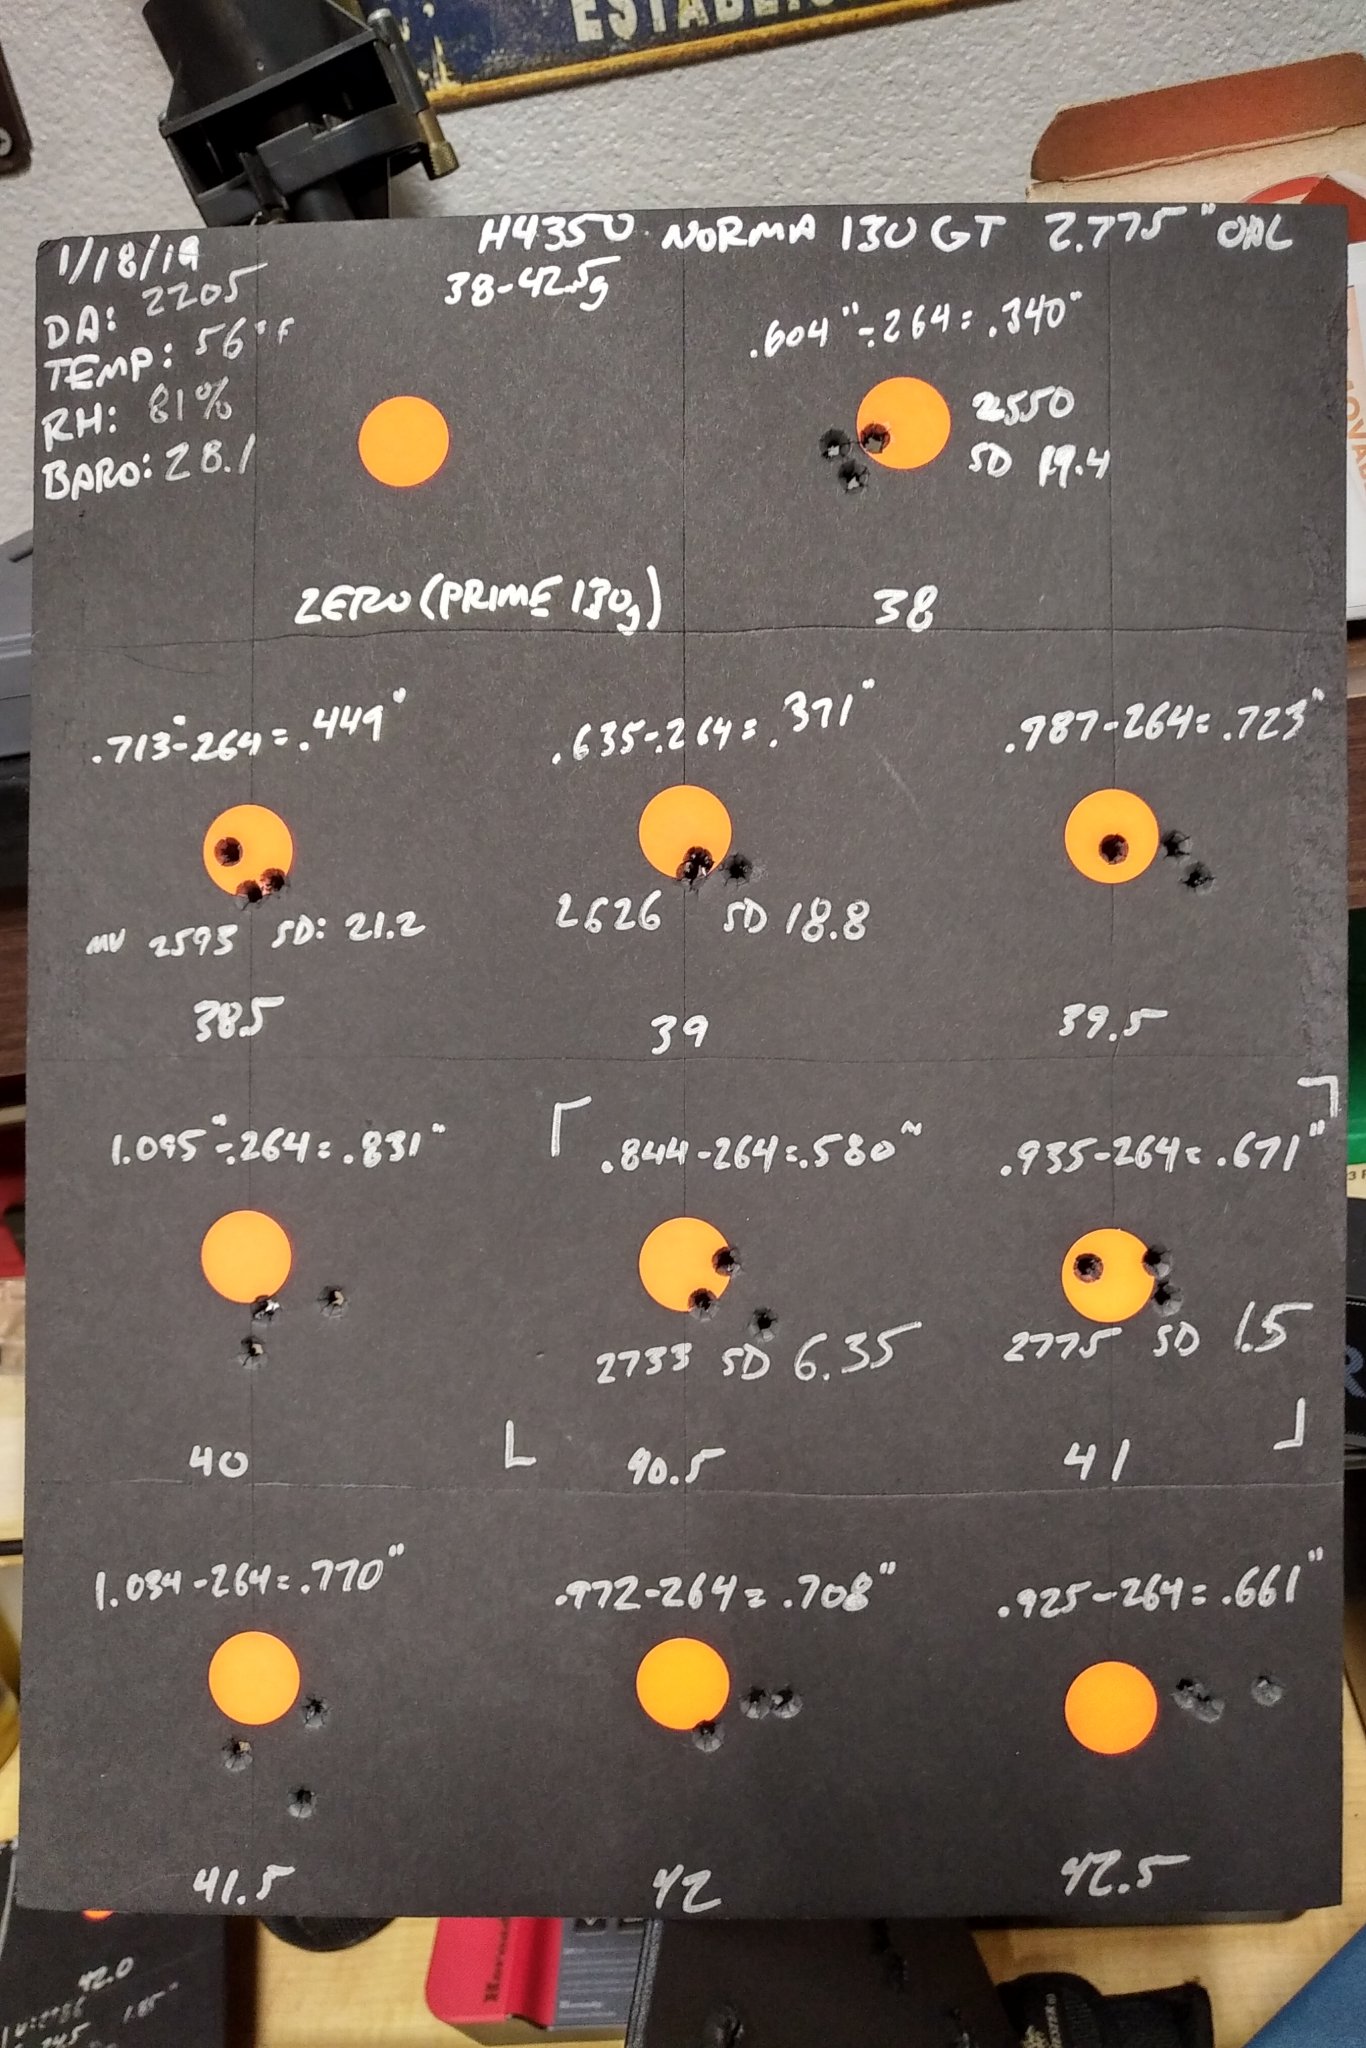 1/18/19
H4350 NORMA 130 GT 2.775" OAL
38-42.5g
DA: 2205
TEMP: 56°F
RH: 81%
BARO: 28.1
.604"-.264=.340"
2550
SD 19.4
ZERO (PRIME 130g)
38
.713"-.264=.449"
MV 2593 SD: 21.2
38.5
.635-.264=.371"
2626 SD 18.8
39
.787-264=.723"
39.5
1.095"-.264=.831"
40
.844-264=.580"
2733 SD 6.35
40.5
.935-264=.671"
2775 SD 1.5
41
1.034-264=.770"
41.5
.972-264=.708"
42
.925-264=.661"
42.5
42.0
1.85"